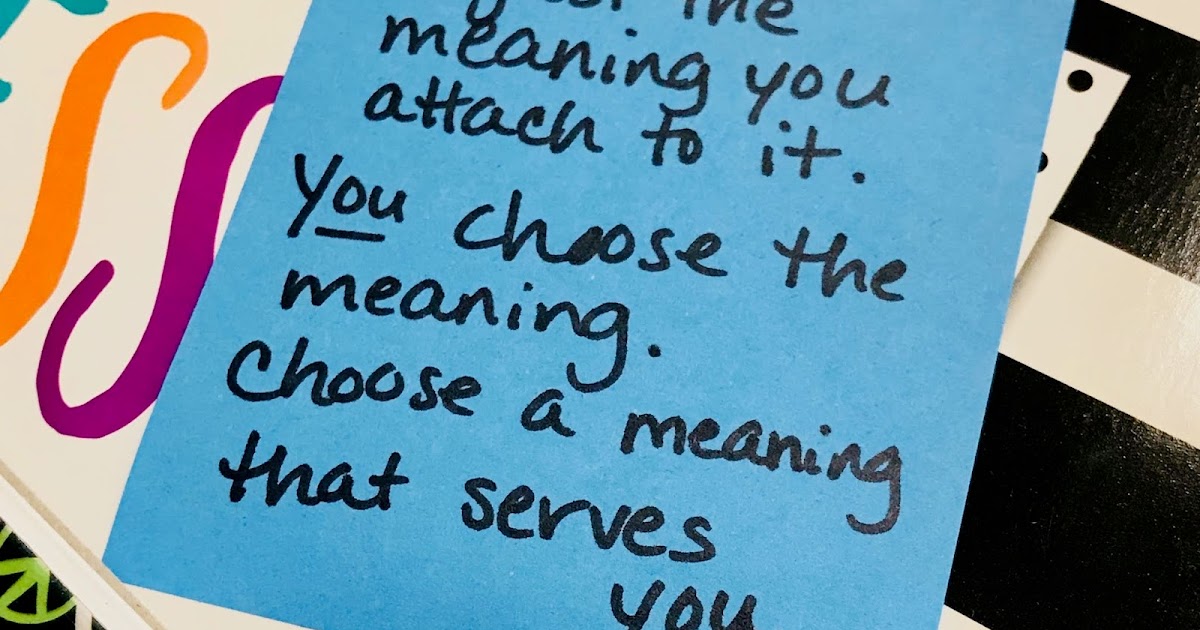 the
meaning you
attach to it.
You choose the
meaning.
Choose a meaning
that serves
you